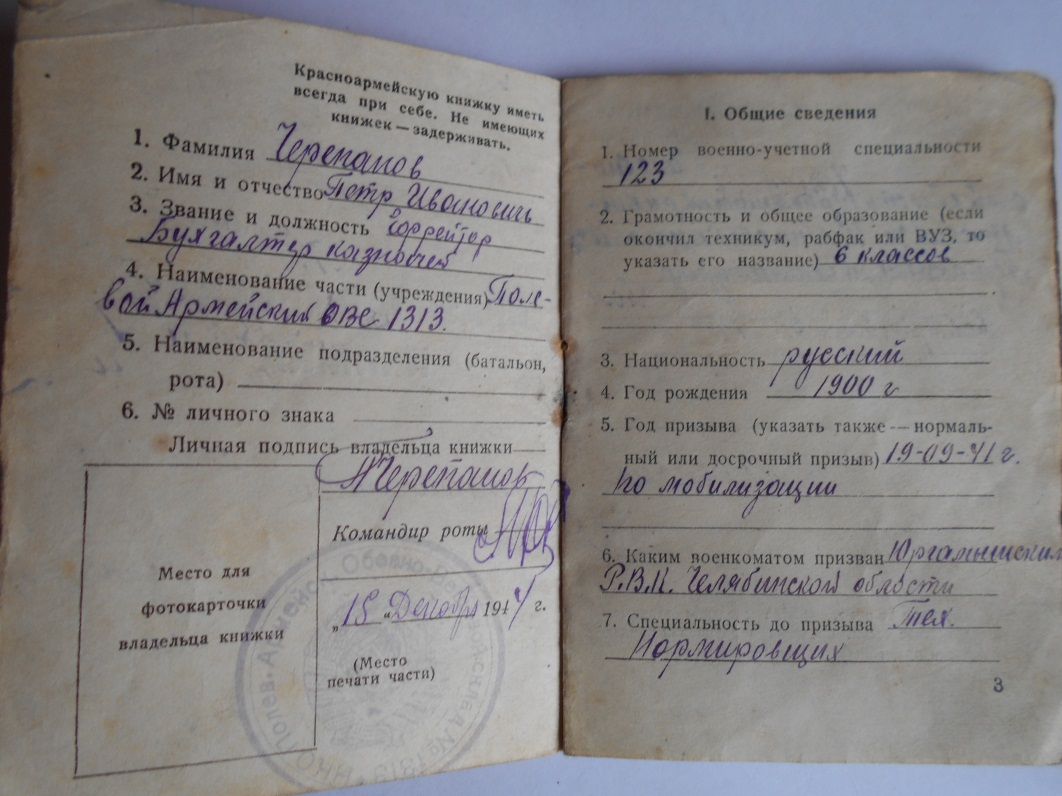 Красноармейскую книжку иметь
всегда при себе. Не имеющих
книжек — задерживать.
1. Фамилия Черепанов
2. Имя и отчество Петр Иванович
3. Звание и должность Ефрейтор
Бухгалтер казначей
4. Наименование части (учреждения) Поле-
вой Армейский ОВС 1313.
5. Наименование подразделения (батальон,
рота)
6. № личного знака
Личная подпись владельца книжки
Черепанов
Командир роты
Место для
фотокарточки
владельца книжки
„15“ Декабря 1944 г.
(Место
печати части)
I. Общие сведения
1. Номер военно-учетной специальности
123
2. Грамотность и общее образование (если
окончил техникум, рабфак или ВУЗ, то
указать его название) 6 классов
3. Национальность русский
4. Год рождения 1900 г
5. Год призыва (указать также — нормаль-
ный или досрочный призыв) 19-09-41 г.
по мобилизации
6. Каким военкоматом призван Юргамышским
Р.В.К. Челябинской области
7. Специальность до призыва Тех.
Нормировщик
3